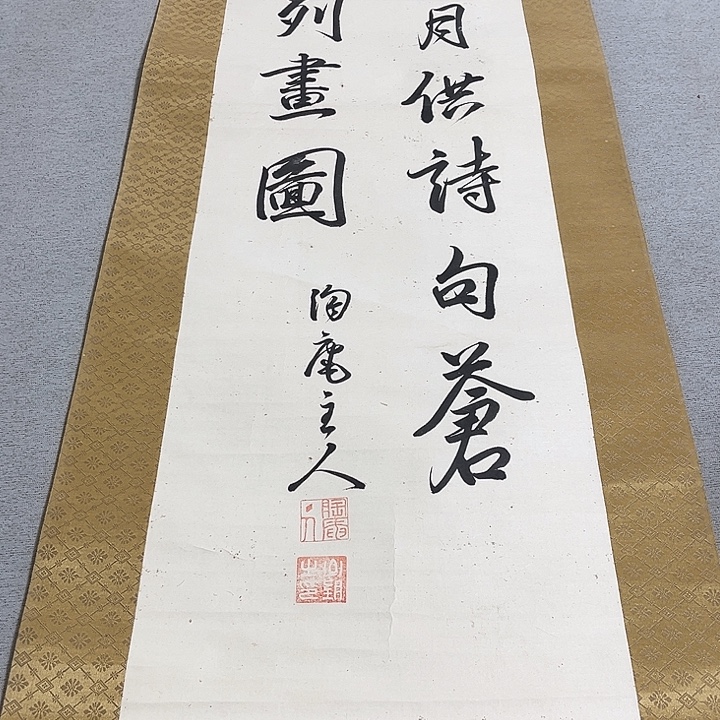 月供詩句蒼
列畫圖
陶庵主人